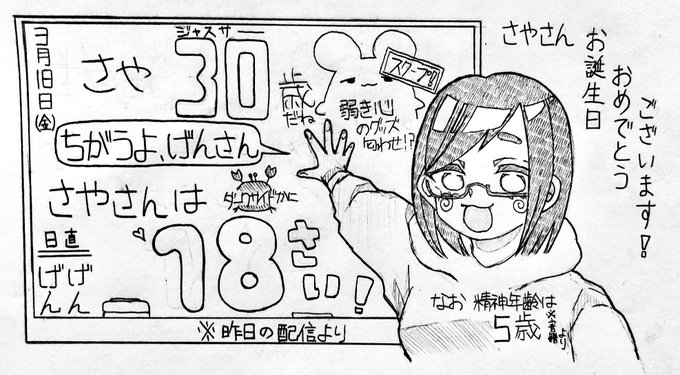 3月18日(金)
さや
ジャスサー
30
歳だね
スクープ!!
弱き心
のグッズ
匂わせ!?
ちがうよ、げんさん
さやさんは
ダークサイドかに
18さい!
日直
げんげん
※昨日の配信より
さやさん
お誕生日
おめでとう
ございます!
なお 精神年齢は
5歳